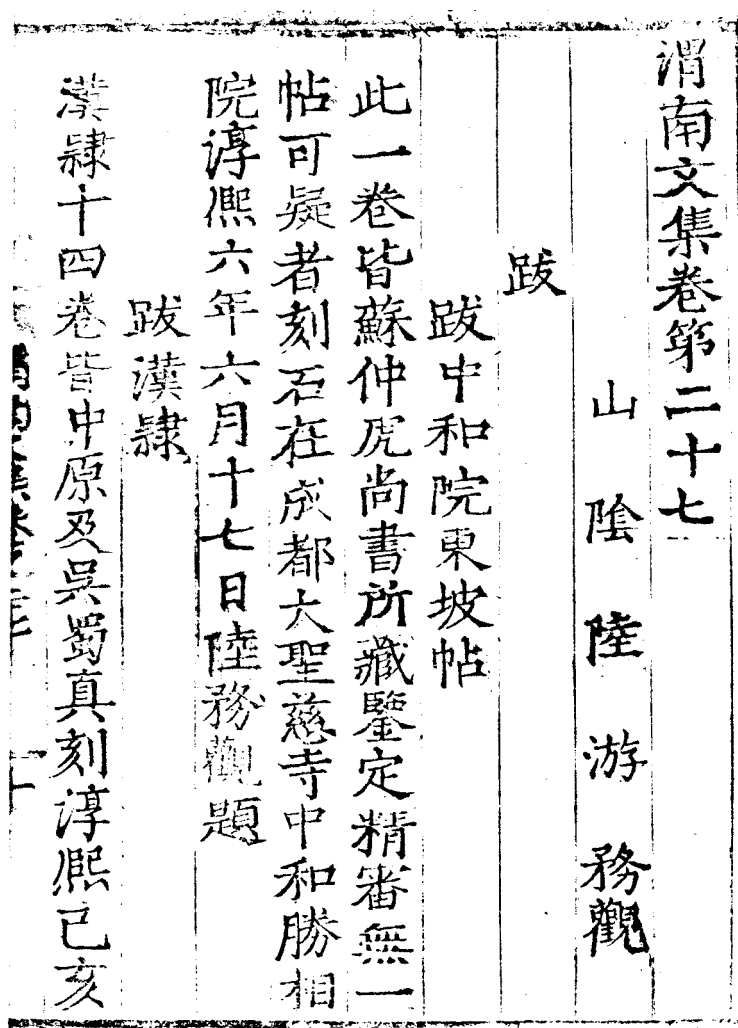 渭南文集卷第二十七
山陰陸游務觀
跋
跋中和院東坡帖
此一卷皆蘇仲虎尚書所藏鑒定精審無一
帖可疑者刻石在成都大聖慈寺中和勝相
院淳熈六年六月十七日陸務觀題
跋漢隸
漢隸十四卷皆中原及吳蜀真刻淳熈己亥